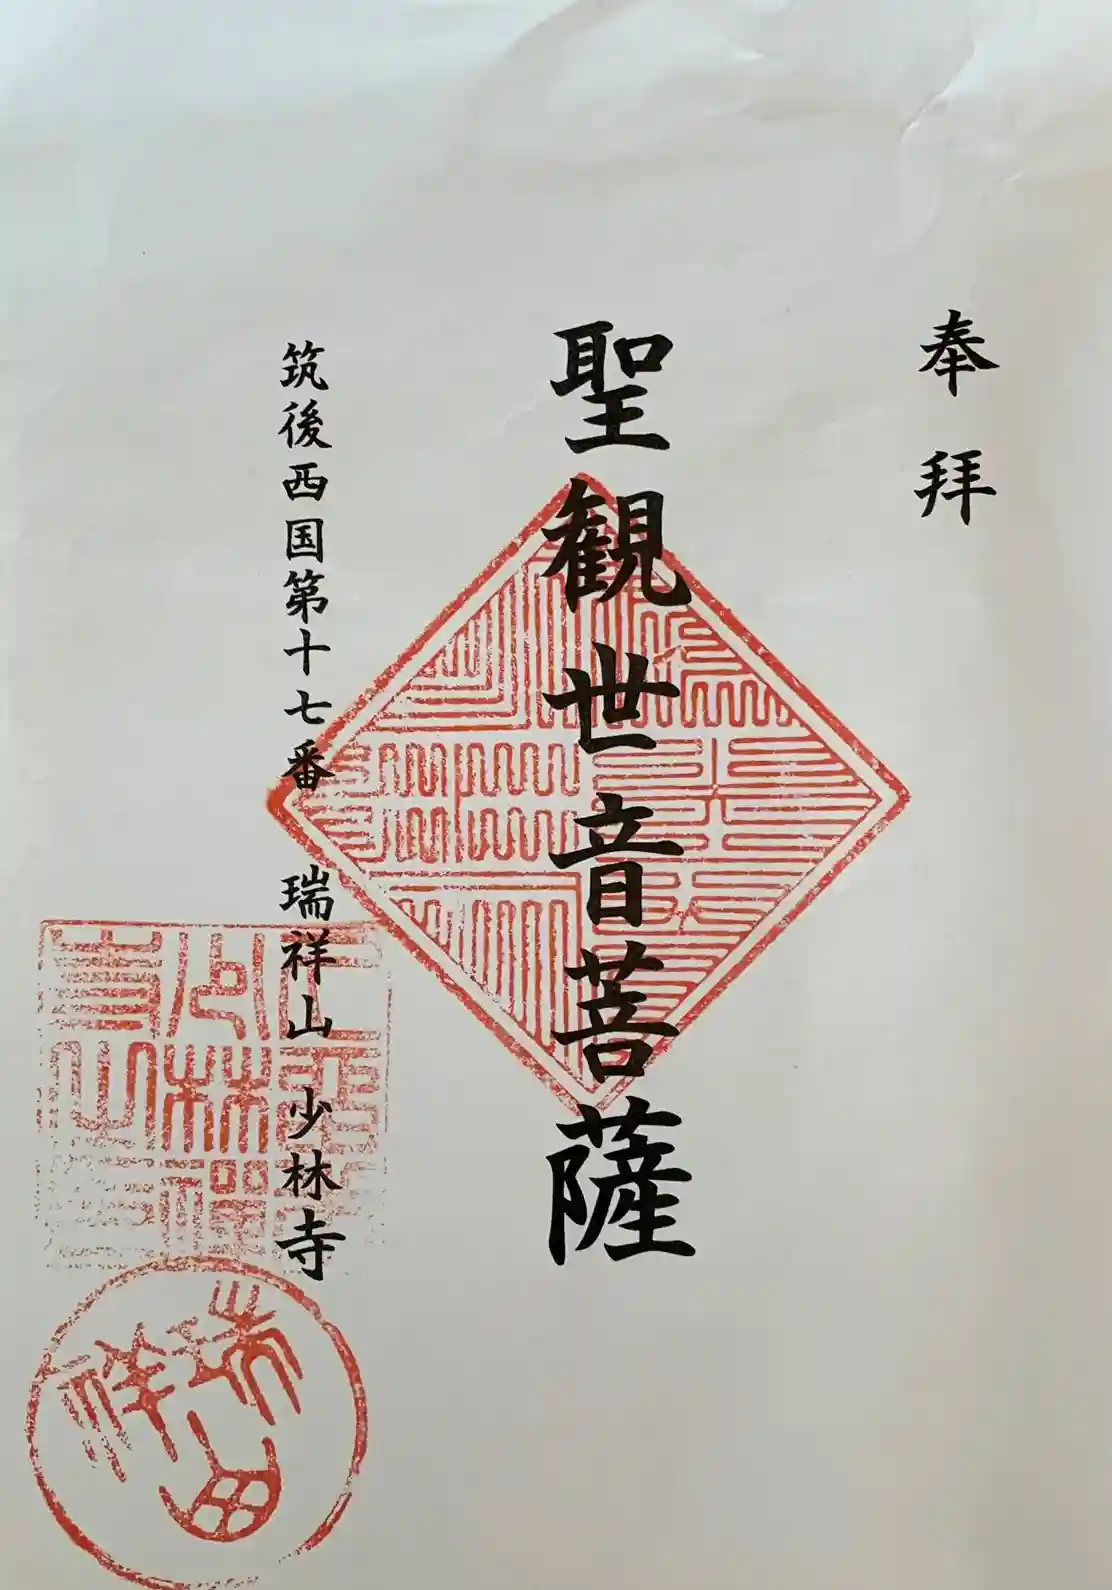 奉拜
聖観世音菩薩
筑後西国第十七番 瑞祥山 少林寺
瑞祥山